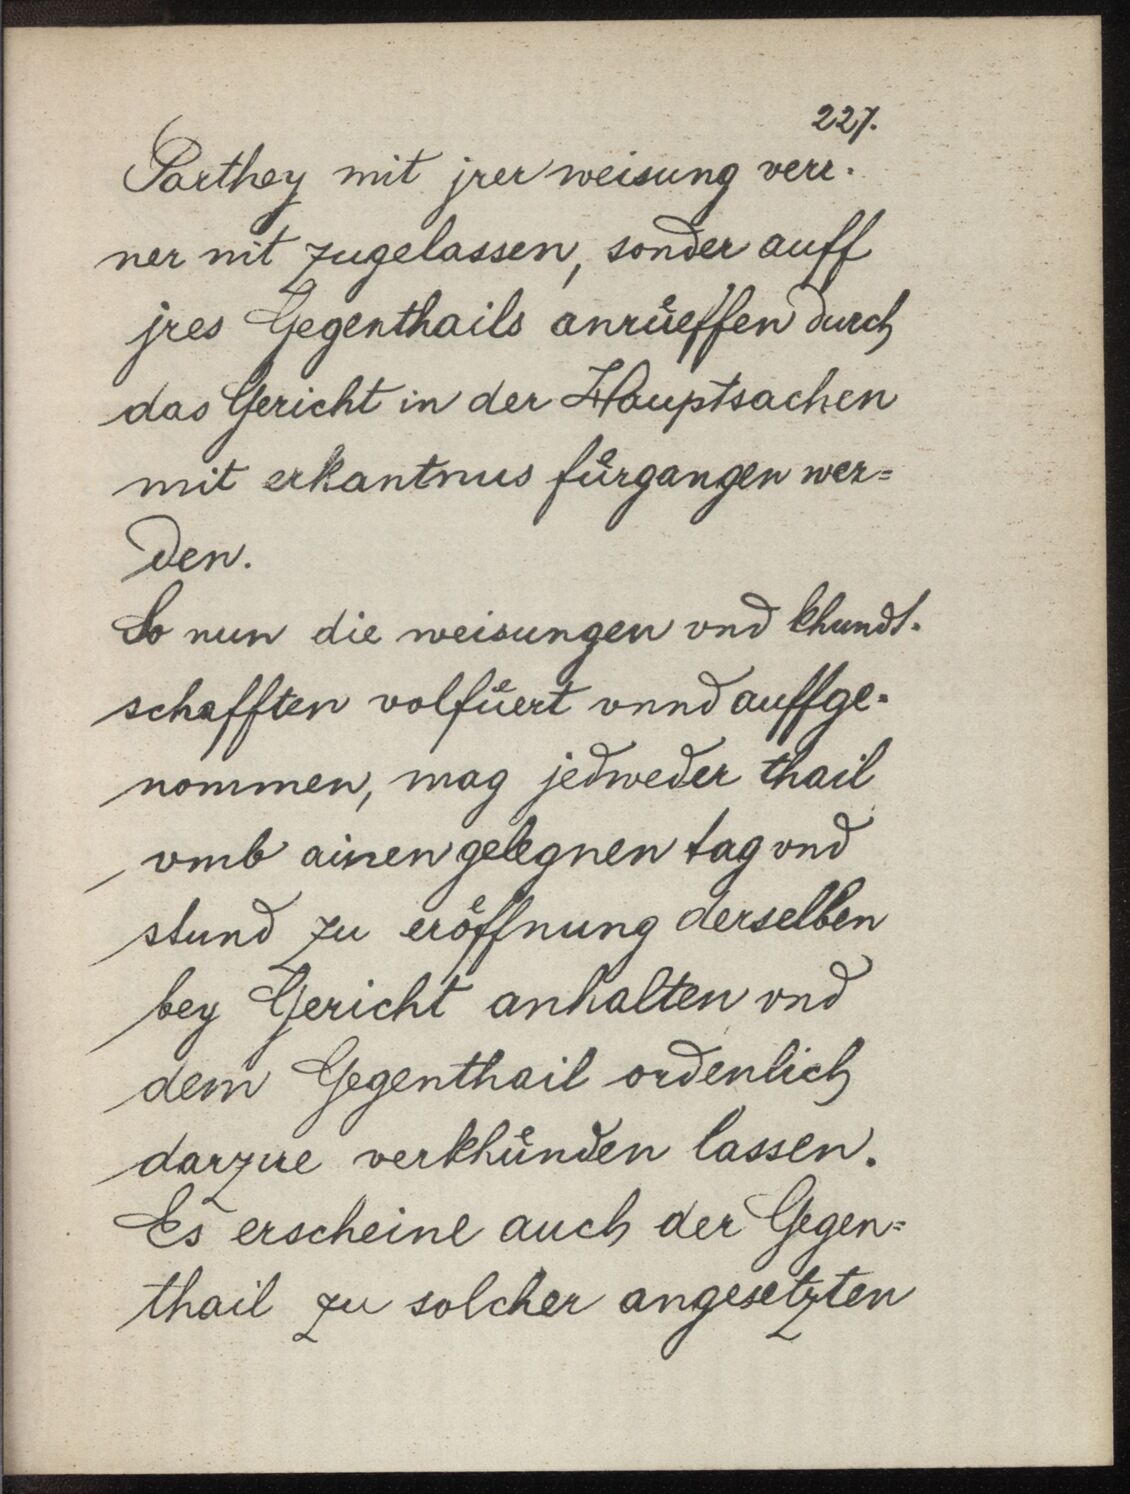 227.
Parthey mit jrer weisung verr-
ner nit zugelassen, sonder auff
jres Gegenthails anrüeffen durch
das Gericht in der Hauptsachen
mit erkantnus fürgangen wer=
den.
So nun die weisungen vnd khundt-
schafften volfüert vnnd auffge-
nommen, mag jedweder thail
vmb ainen gelegnen tag vnd
stund zu eröffnung derselben
bey Gericht anhalten vnd
dem Gegenthail ordenlich
darzue verkhünden lassen.
Es erscheine auch der Gegen=
thail zu solcher angesetzten